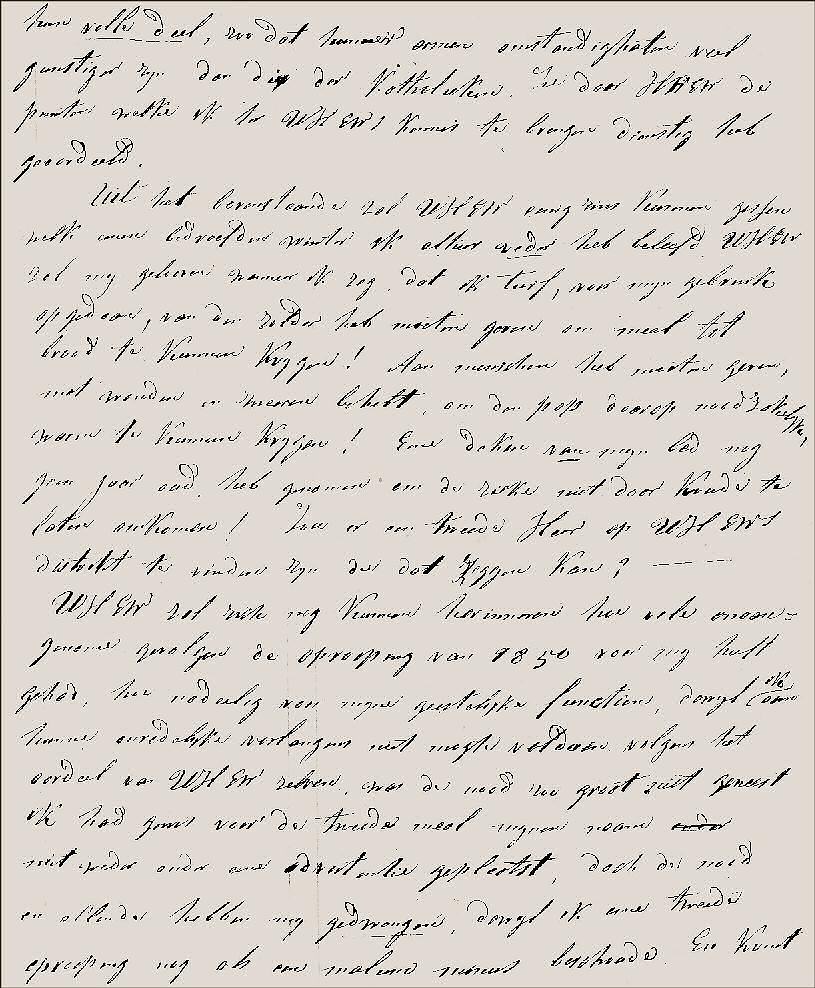 hun volle deel, zoo dat hunner armen omstandigheden veel
gunstiger zyn dan die der Katholieken. Ze daar UHEW de
punten welke ik ter UHEWs kennis te brengen dienstig heb
geoordeeld.
Uit het bovenstaande zal UHEW eenigzins kunnen gissen
welk eenen bedroefden winter ik alhier weder heb beleefd. UHEW
zal my gelooven wanneer ik zeg, dat ik turf, voor myn gebruik
opgedaan, van den zolder heb moeten geven om meel tot
brood te kunnen krygen! Aan menschen heb moeten geven,
met wonden en zweeren behebt, om den pap daarop noodzakelyk,
warm te kunnen krygen! Eene deken van myn bed nog
geen jaar oud, heb genomen om de zieke niet door koude te
laten omkomen! Zou er een tweede Heer op UHEWs
district te vinden zyn die dat zeggen kan?
UHEW zal zich nog kunnen herinneren hoe vele onaan=
gename gevolgen de oproeping van 1850 voor my heeft
gehad, hoe nadeelig voor myne geestelyke functien, dewyl ik aan
hunne onredelyke verlangens niet mogte voldoen volgens het
oordeel van UHEW zelven, was de nood zoo groot niet geweest
ik had gewis voor de tweede maal mynen naam
niet weder onder eene advertentie geplaatst, doch de nood
en ellende hebben my gedwongen, dewyl ik eene tweede
oproeping nog als een malum minus beschouwde. En kunt